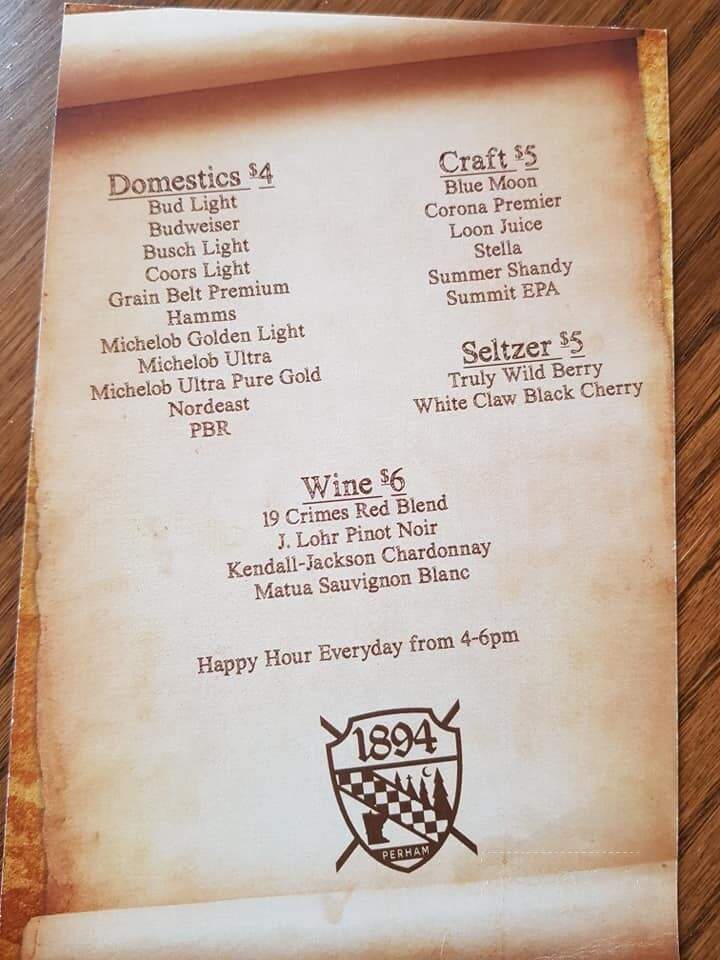 Domestics $4
Bud Light
Budweiser
Busch Light
Coors Light
Grain Belt Premium
Hamms
Michelob Golden Light
Michelob Ultra
Michelob Ultra Pure Gold
Nordeast
PBR
Craft $5
Blue Moon
Corona Premier
Loon Juice
Stella
Summer Shandy
Summit EPA
Seltzer $5
Truly Wild Berry
White Claw Black Cherry
Wine $6
19 Crimes Red Blend
J. Lohr Pinot Noir
Kendall-Jackson Chardonnay
Matua Sauvignon Blanc
Happy Hour Everyday from 4-6pm
1894
PERHAM